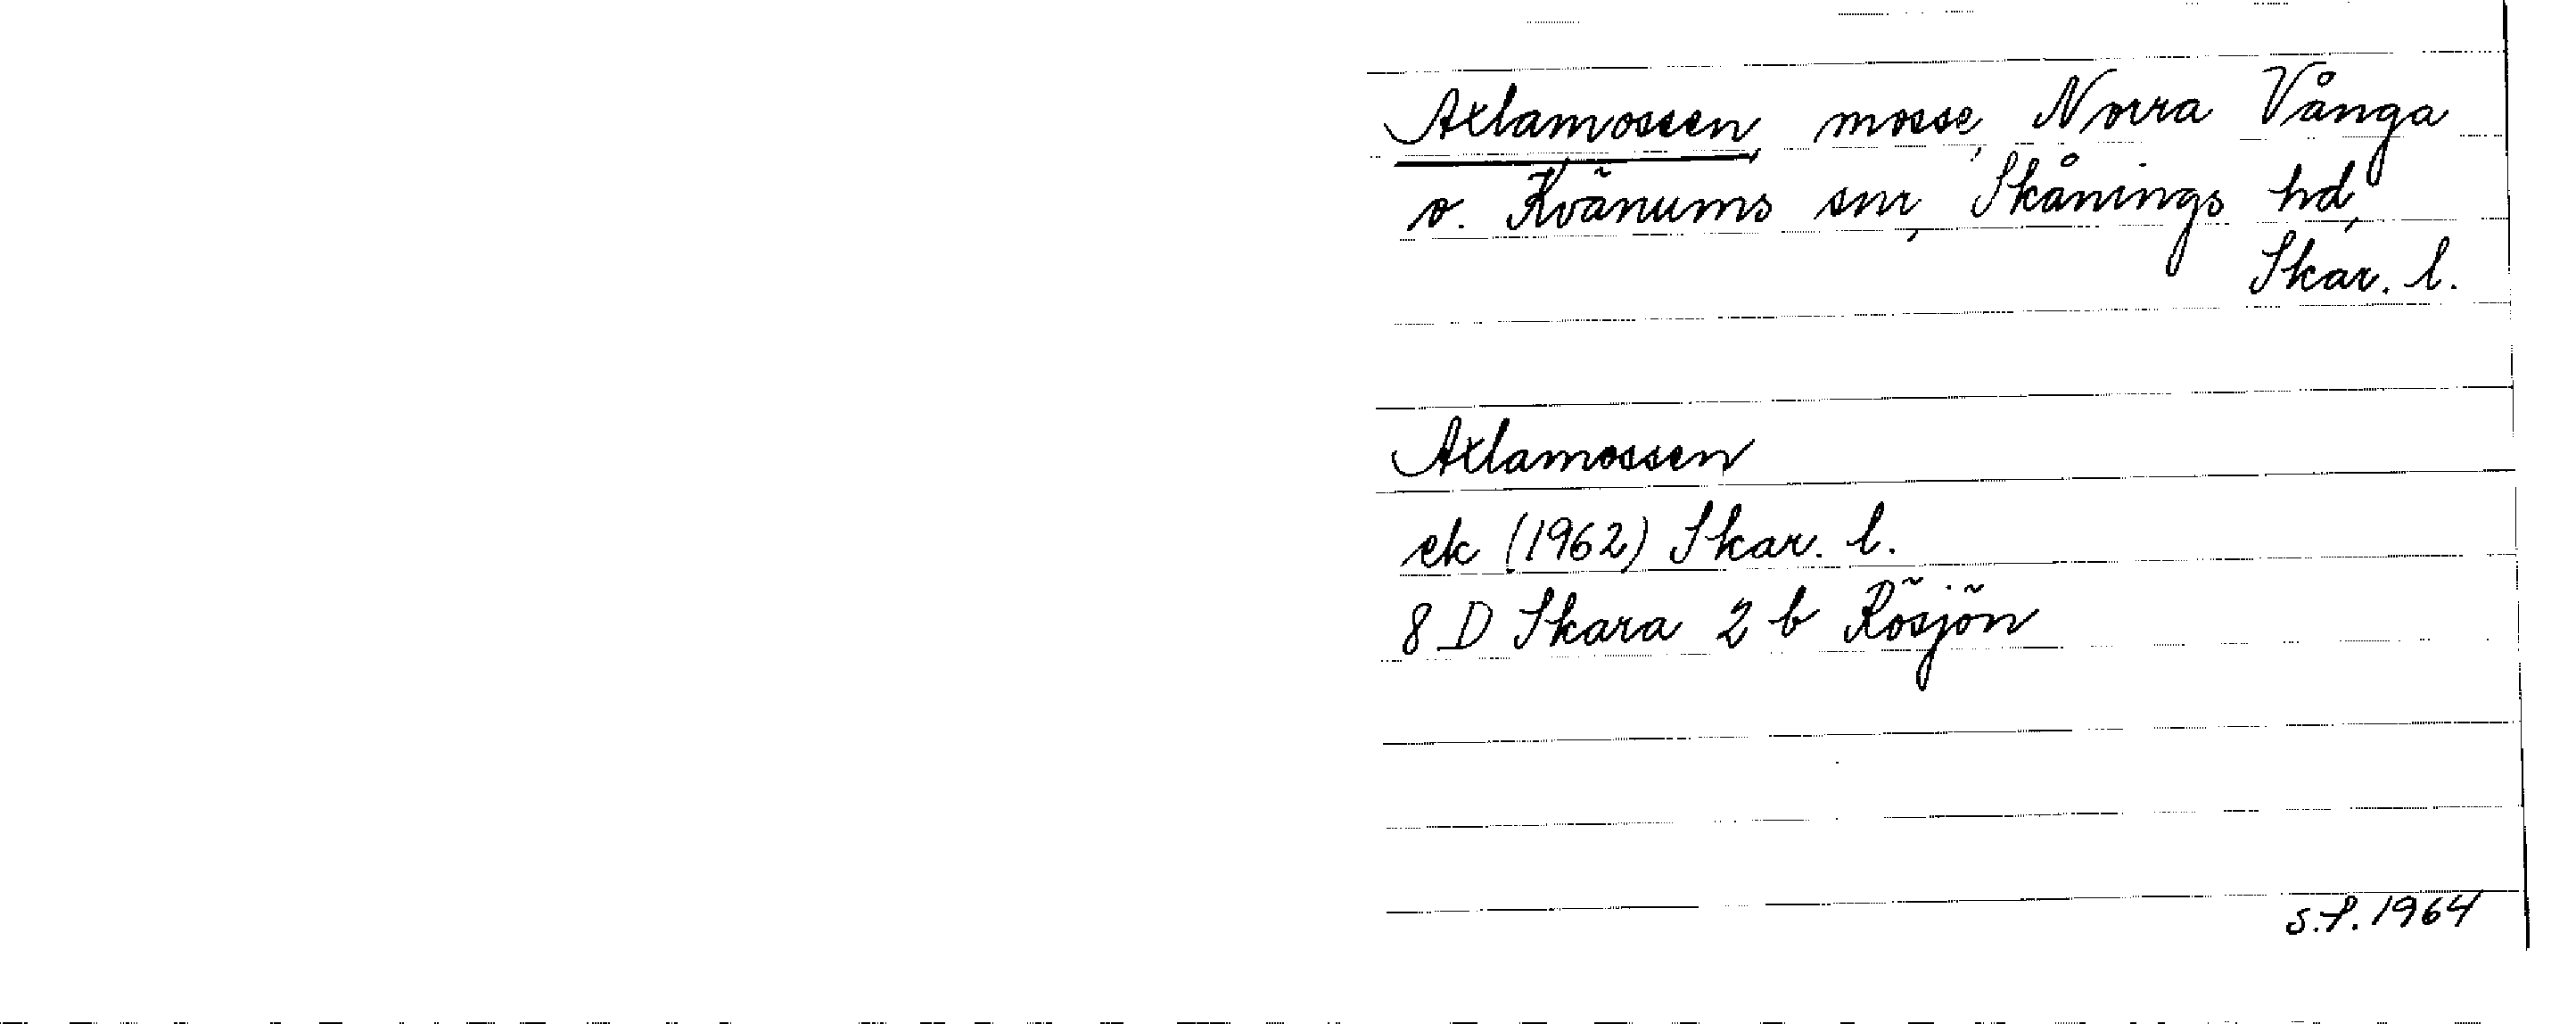 Axlamossen, mosse, Norra Vånga
o. Kvänums snr, Skånings hd,
Skar. l.
Axlamossen
ek (1962) Skar. l.
8 D Skara 2 b Rösjön
S.F. 1964